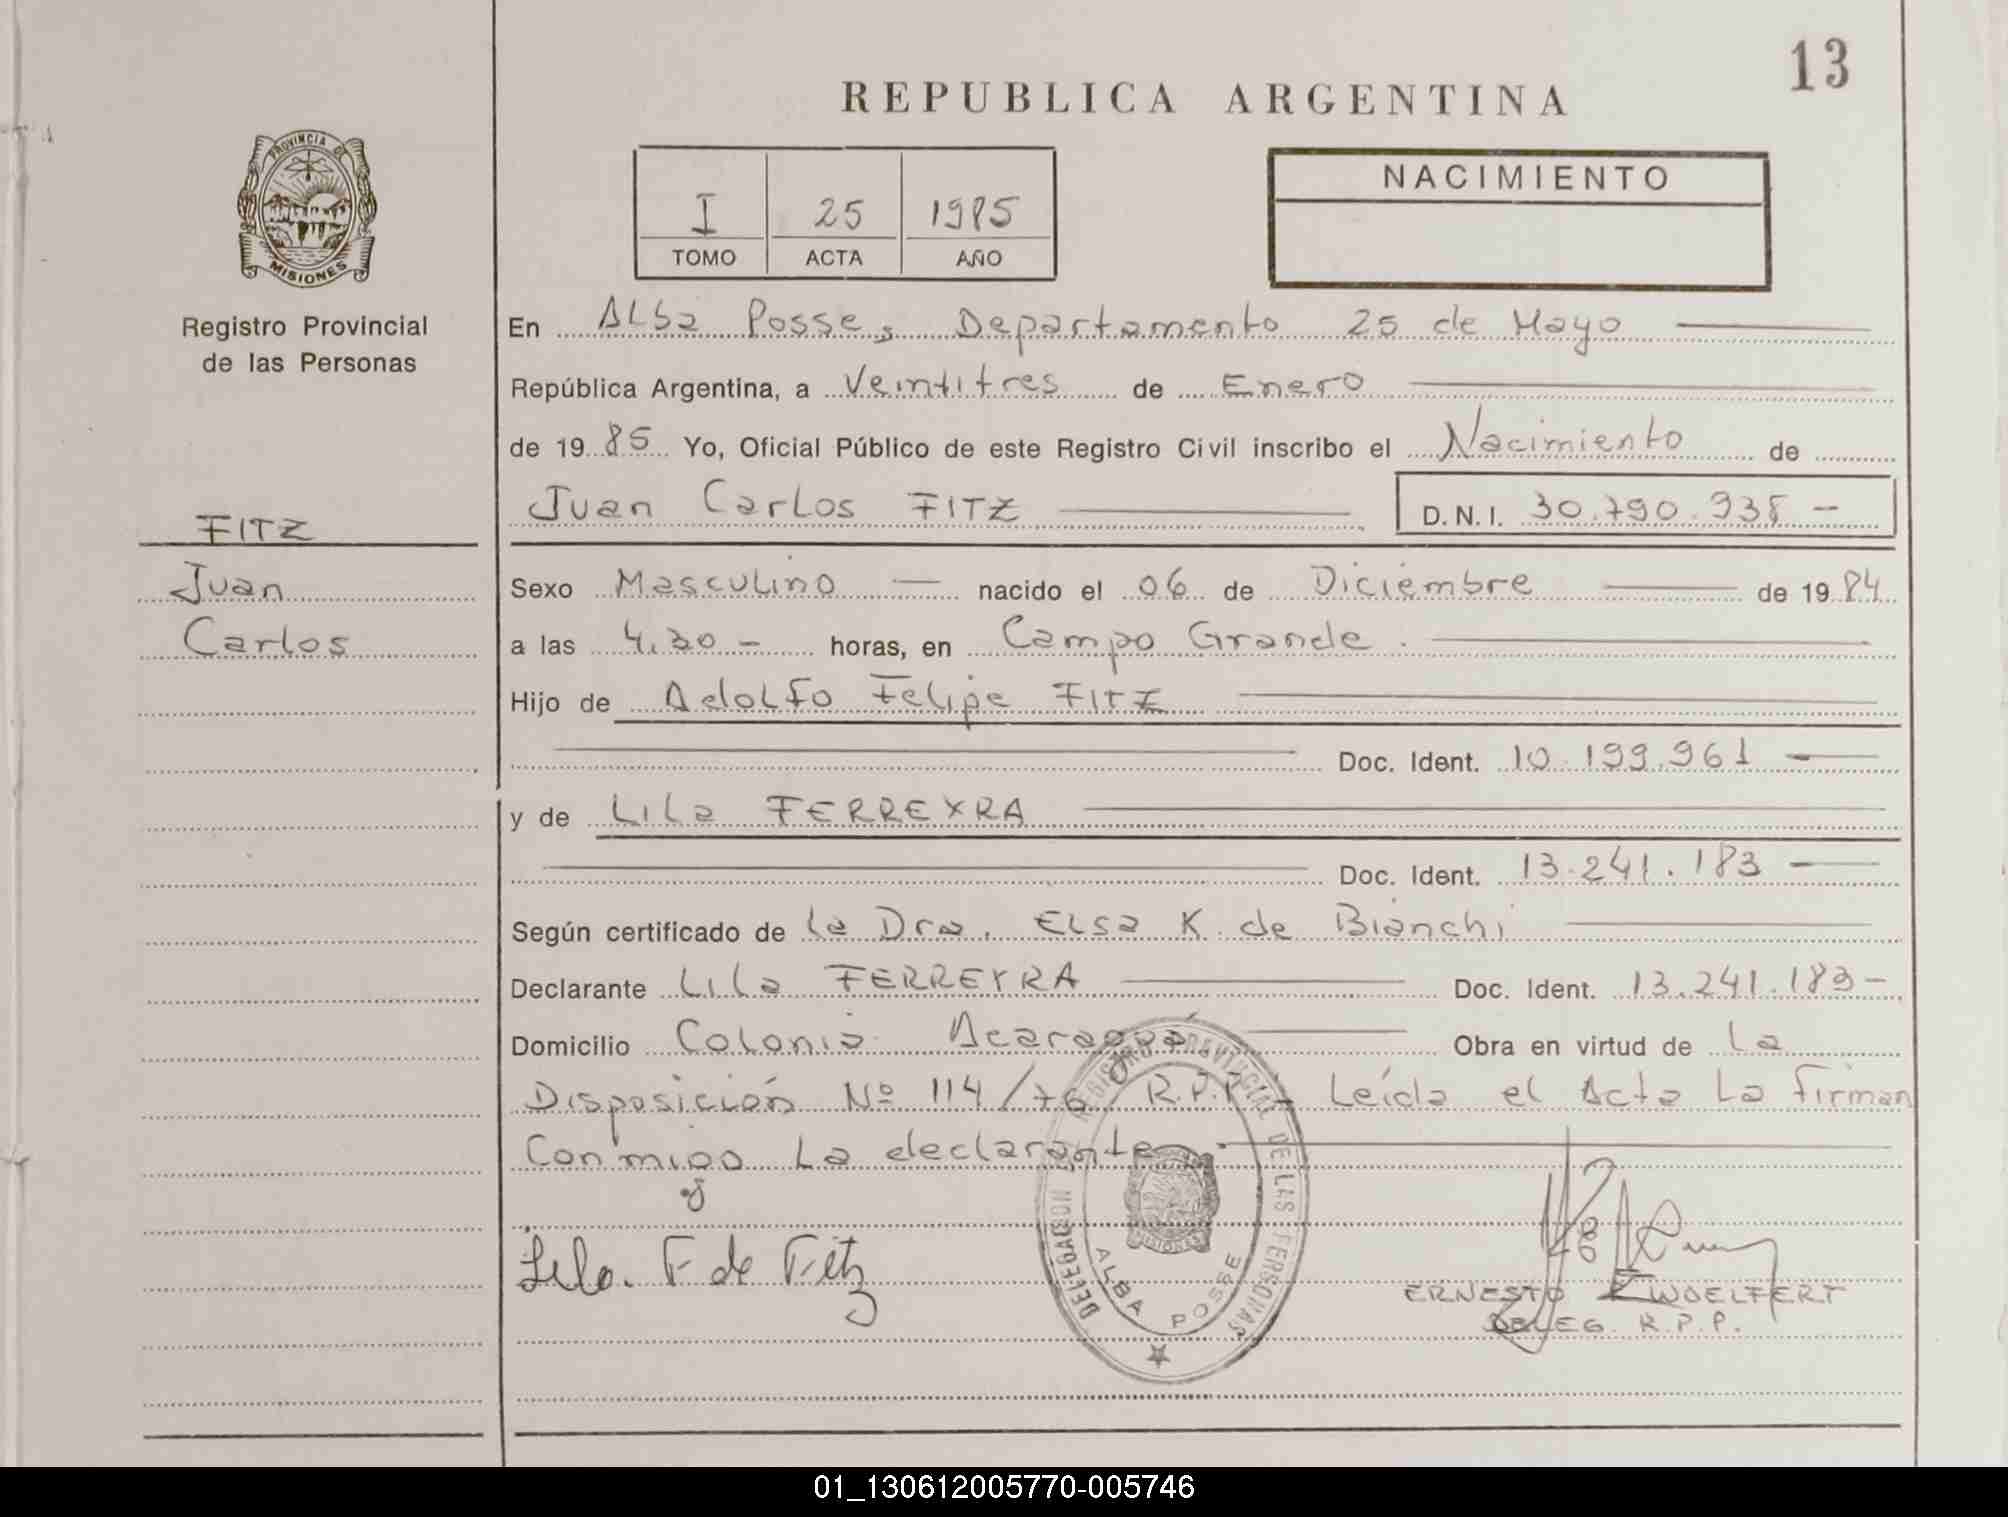 13
REPUBLICA ARGENTINA
PROVINCIA DE
MISIONES
I 25 1985
TOMO ACTA AÑO
NACIMIENTO
Registro Provincial
de las Personas
En Alba Posse, Departamento 25 de Mayo
República Argentina, a Veintitres de Enero
de 1985 Yo, Oficial Público de este Registro Civil inscribo el Nacimiento de
Juan Carlos FITZ D.N.I. 30.790.938 -
FITZ
Juan
Carlos
Sexo Masculino nacido el 06 de Diciembre de 1984
a las 4,30 - horas, en Campo Grande.
Hijo de Adolfo Felipe FITZ
Doc. Ident. 10.199.961
y de Lila FERREYRA
Doc. Ident. 13.241.183
Según certificado de la Dra. Elsa K. de Bianchi
Declarante Lila FERREYRA Doc. Ident. 13.241.183-
Domicilio Colonia Acaraguá Obra en virtud de La
Disposición Nº 114/76 R.P.P.- Leída el Acta La firman
Conmigo La declarante.-
Lila. F de Fitz
ERNESTO WOELFERT
DELEG. R.P.P.
DELEGACION REGISTRO PROVINCIAL DE LAS PERSONAS
MISIONES
ALBA POSSE
01_130612005770-005746